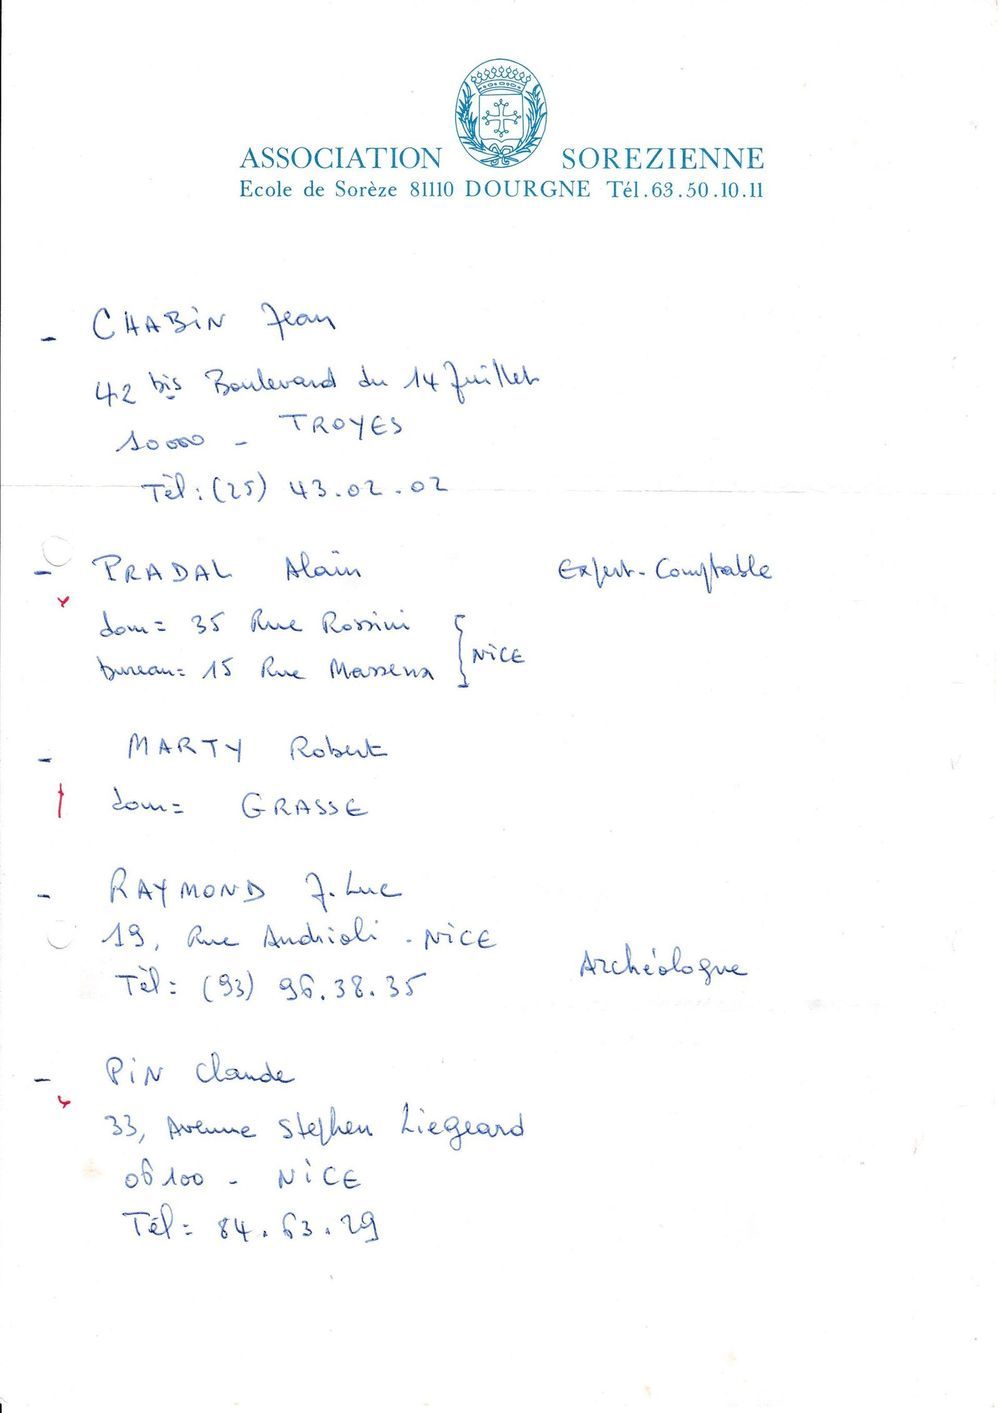 ASSOCIATION SOREZIENNE
Ecole de Sorèze 81110 DOURGNE Tél.63.50.10.11
- CHABIN Jean
42 bis Boulevard du 14 Juillet
10000 - TROYES
Tèl : (25) 43.02.02
- PRADAL Alain Expert-Comptable
dom = 35 Rue Rossini
bureau = 15 Rue Massena } NICE
- MARTY Robert
dom = GRASSE
- RAYMOND J. Luc
19, Rue Andrioli . NICE
Archéologue
Tèl = (93) 96.38.35
- PIN Claude
33, Avenue Stephen Liegeard
06100 - NICE
Tél = 84.63.29